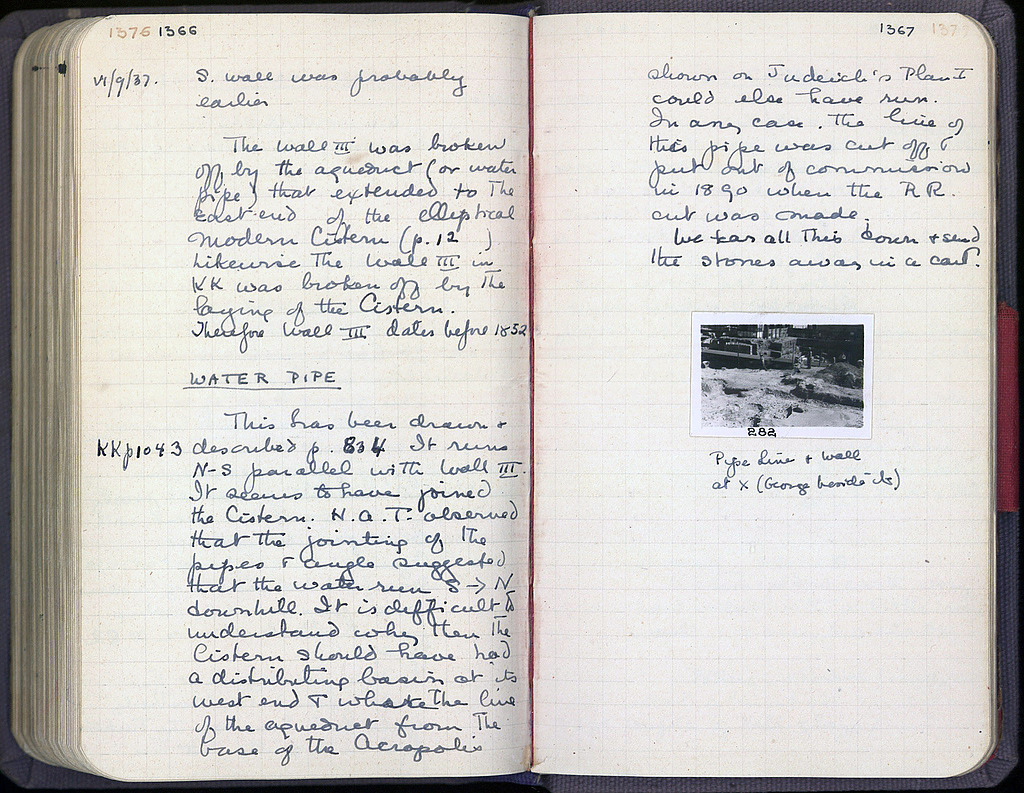 1376 1366
VI/9/37.
S. wall was probably
earlier
The wall III was broken
off by the aqueduct (or water
pipe) that extended to the
East end of the elliptical
modern Cistern (p.12 )
Likewise the wall III in
KK was broken off by the
laying of the Cistern.
Therefore Wall III dates before 1852
WATER PIPE
This has been drawn +
KKp1043
described p. 834 It runs
N-S parallel with Wall III.
It seems to have joined
the Cistern. H.A.T. observed
that the jointing of the
pipes + angle suggested
that the water run S → N
downhill. It is difficult to
understand why then the
Cistern should have had
a distributing basin at its
west end + the line
of the aqueduct from the
base of the Acropolis
1367 137
shown on Judeich's Plan I
could else have run.
In any case, the line of
this pipe was cut off +
put out of commission
in 1890 when the RR.
cut was made.
We tear all this down + send
the stones away in a cart.
282
Pipe line + wall
at X (George beside it)